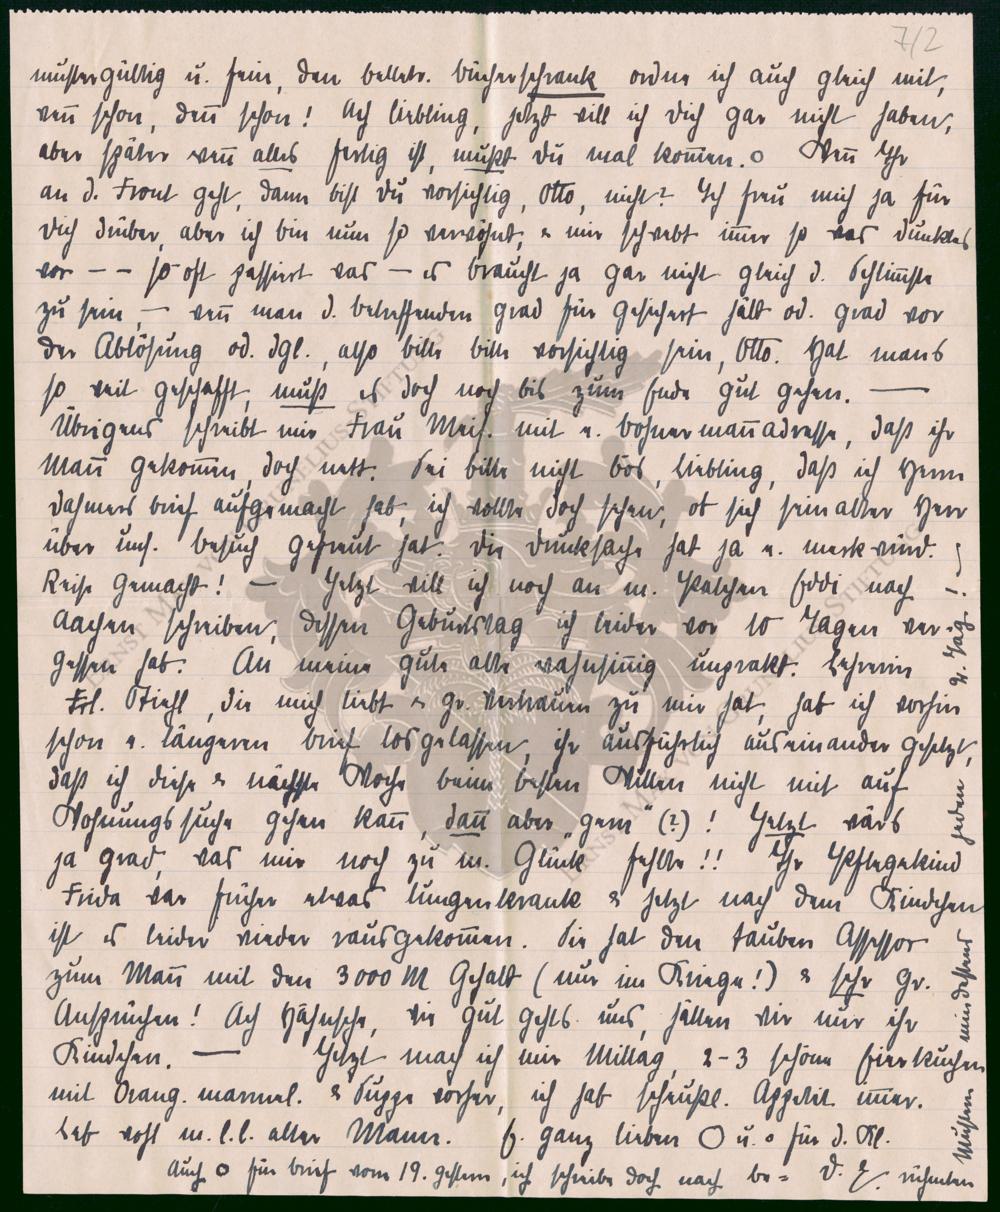 7/2
mustergültig u. fein, den belletr. Bücherschrank ordne ich auch gleich mit,
wen̄ schon, den̄ schon! Ach Liebling, jetzt will ich Dich gar nicht haben,
aber später wen̄ alles fertig ist, mußt Du mal kom̄en. o Wen̄ Ihr
an d. Front geht, dann bist Du vorsichtig, Otto, nicht? Ich freu mich ja für
Dich drüber, aber ich bin nun so verwöhnt, & mir schwebt im̄er so was dunkles
vor – – so oft passiert was – es braucht ja gar nicht gleich d. Schlim̄ste
zu sein, – wen̄ man d. betreffenden grad für gesichert hält od. grad vor
der Ablösung od. dgl., also bitte bitte vorsichtig sein, Otto. Hat mans
so weit geschafft, muß es doch noch bis zum Ende gut gehen. —
Übrigens schreibt mir Frau Meis. mit e. Adresse, daß ihr
Man̄ gekom̄en, doch nett. Sei bitte nicht bös, Liebling, daß ich Herrn
Dahmers Brief aufgemacht hab, ich wollte doch sehen, ob sich sein alter Herr
über uns. Besuch gefreut hat. Die Drucksache hat ja e. merkwürd.
Reise gemacht! — Jetzt will ich noch an m. Patchen Eddi nach
Aachen schreiben, dessen Geburtstag ich leider vor 10 Tagen ver-
gessen hab. An meine gute alte wahnsin̄ig unprakt. Lehrerin
Frl. Stiehl, die mich liebt & gr. Vertrauen zu mir hat, hab ich vorhin
schon e. längeren Brief losgelassen, ihr ausführlich auseinander gesetzt,
daß ich diese & nächste Woche beim besten Willen nicht mit auf
Wohnungssuche gehen kan̄, dan̄ aber „gern" (?)! Jetzt wärs
ja grad, was mir noch zu m. Glück fehlte!! Ihr Pflegekind
Frida war früher etwas lungenkrank & jetzt nach dem Kindchen
ist es leider wieder rausgekom̄en. Sie hat den tauben Assessor
zum Man̄ mit den 3000 M Gehalt (nur im Kriege!) & sehr gr.
Ansprüchen! Ach Hähnsche, wie gut gehts uns, hätten wir nur ihr
Kindchen. — Jetzt mach ich mir Mittag, 2-3 schöne Eierkuchen
mit Orang. marmel. & Suppe vorher, ich hab scheußl. Appetit im̄er.
Leb wohl m. l. l. alter Mann. E. ganz lieben O u. o für d. Kl.
Auch o für Brief vom 19. gestern, ich schreibe doch nach be= D. E. rühmten
Mustern mindestens jeden 2. Tag! –